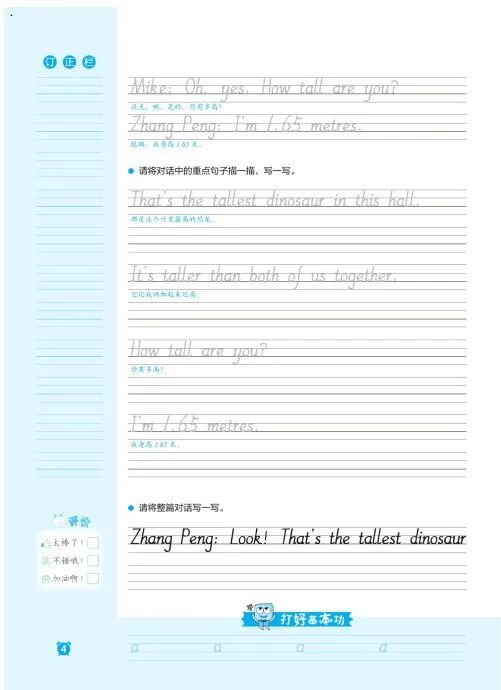 订正栏
Mike: Oh, yes. How tall are you?
迈克：哦，是的。你有多高？
Zhang Peng: I'm 1.65 metres.
张鹏：我身高 1.65 米。
请将对话中的重点句子描一描，写一写。
That's the tallest dinosaur in this hall.
那是这个厅里最高的恐龙。
It's taller than both of us together.
它比我俩加起来还高。
How tall are you?
你有多高？
I'm 1.65 metres.
我身高 1.65 米。
请将整篇对话写一写。
Zhang Peng: Look! That's the tallest dinosaur
评价
太棒了！
不错哦！
加油啊！
打好基本功
4
a a a a